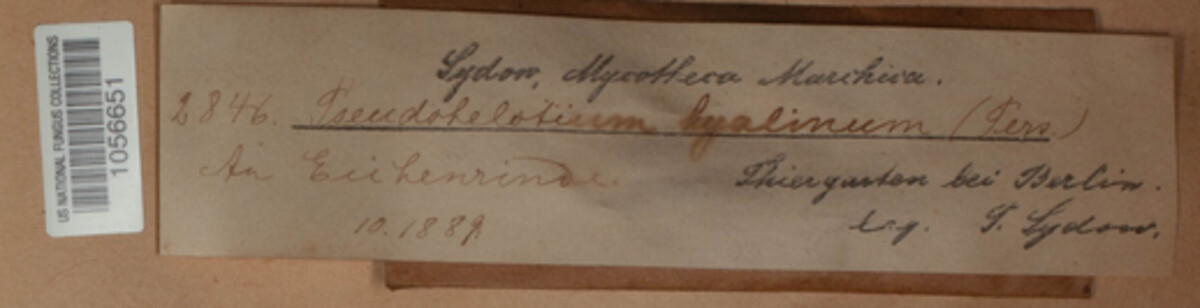 US NATIONAL FUNGUS COLLECTIONS
1056651
Sydow, Mycotheca Marchica.
2846. Pseudohelotium hyalinum (Pers.)
An Eichenrinde.
Thiergarten bei Berlin.
10.1889.
leg. P. Sydow.